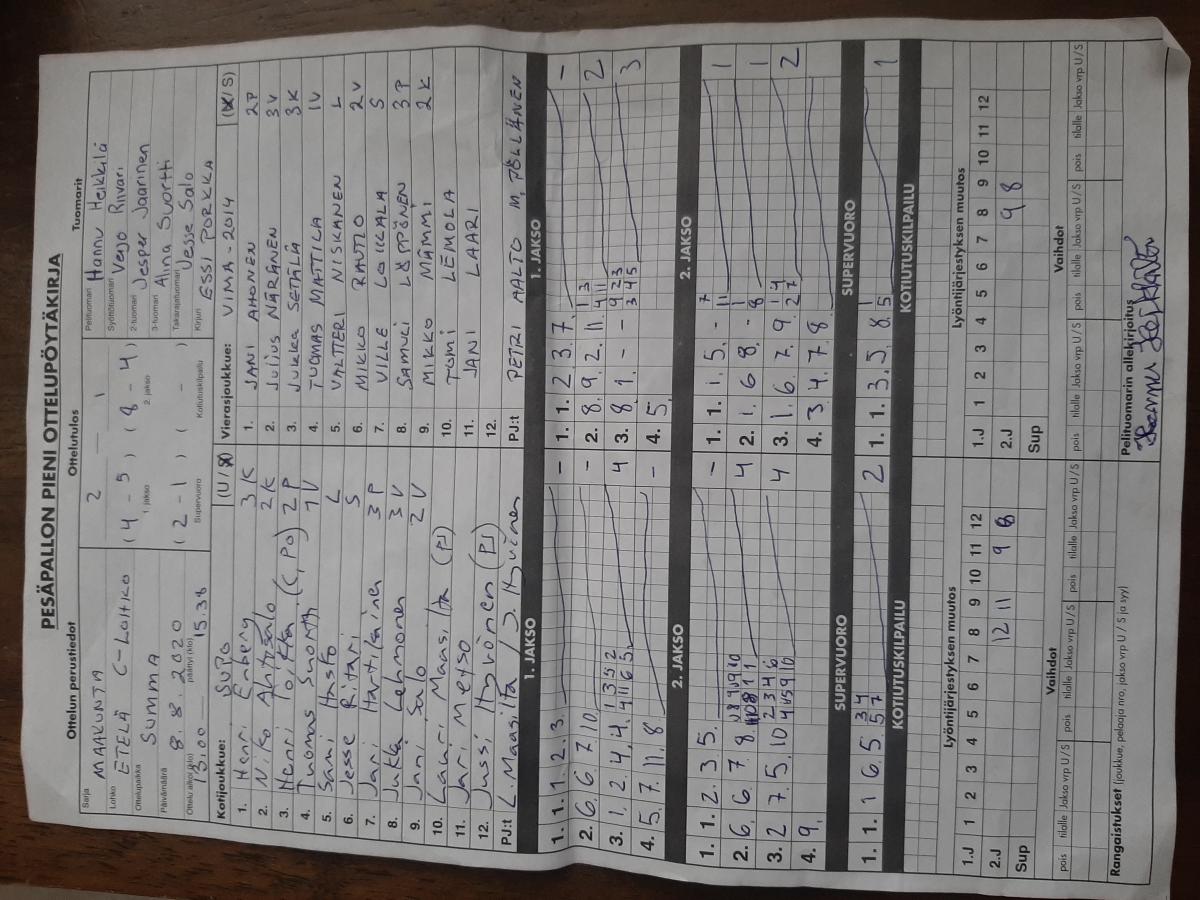 PESÄPALLON PIENI OTTELUPÖYTÄKIRJA
Ottelun perustiedot
Sarja MAAKUNTA
Lohko ETELÄ C-Lohko
Ottelupaikka SUMMA
Päivämäärä 8.8.2020
Ottelu alkoi (klo) 13.00 päättyi (klo) 15.38
Ottelutulos
2 — 1
(4 - 5) (8 - 4)
1. jakso 2. jakso
(2 - 1) ( - )
Supervuoro Kotiutuskilpailu
Tuomarit
Pelituomari Hannu Heikkilä
Syöttötuomari Veijo Riivari
2-tuomari Jesper Jaarinen
3-tuomari Alina Suortti
Takarajatuomari Jesse Salo
Kirjuri ESSI PORKKA
Kotijoukkue: SUPO (U/S)
1. Henri Enberg 3K
2. Niko Ahtosalo 2K
3. Henri Torkka (C, PO) 2P
4. Tuomas Suomi 1V
5. Sami Hasto L
6. Jesse Ritari S
7. Jari Hartikainen 3P
8. Jukka Lehmonen 3V
9. Jani Salo 2V
10. Lauri Maasilta (PJ)
11. Jari Metso
12. Jussi Hyvönen (PJ)
PJ:t L. Maasilta / J. Hyvönen
Vierasjoukkue: VIMA-2014 (U/S)
1. JANI AHONEN 2P
2. Julius NÄRÄNEN 3V
3. Jukka SETÄLÄ 3K
4. TUOMAS MATTILA 1V
5. VALTTERI NISKANEN L
6. MIKKO RAUTIO 2V
7. VILLE LOIKKALA S
8. SAMULI LÖPPÖNEN 3P
9. MIKKO MÄMMI 2K
10. TOMI LEMOLA
11. JANI LAARI
12.
PJ:t PETRI AALTO M. PÖLLÄNEN
1. JAKSO
1. 1. 1. 2. 3. -
2. 6 6 7 10 -
3. 1. 2. 4. 4. 4
4. 5. 7. 11. 8 -
1. JAKSO
1. 1. 2. 3. 7. -
2. 8. 9. 2. 11. 2
3. 8 1. - - 3
4. 5.
2. JAKSO
1. 1. 2. 3 5. -
2. 6. 6. 7. 8. 4
3. 2 7. 5. 10 4
4. 9.
2. JAKSO
1. 1. 1. 5. - 1
2. 1. 6 8. - 1
3. 1. 6. 7. 9. 2
4. 3 4. 7 8
SUPERVUORO
1. 1. 1 6. 5. 2
SUPERVUORO
1. 1. 3. 3. 8. 1
KOTIUTUSKILPAILU
KOTIUTUSKILPAILU
Lyöntijärjestyksen muutos
1.J 1 2 3 4 5 6 7 8 9 10 11 12
2.J 12 11 9 8
Sup
Lyöntijärjestyksen muutos
1.J 1 2 3 4 5 6 7 8 9 10 11 12
2.J 9 8
Sup
Vaihdot
pois tilalle Jakso vrp U / S pois tilalle Jakso vrp U / S pois tilalle Jakso vrp U / S
Vaihdot
pois tilalle Jakso vrp U / S pois tilalle Jakso vrp U / S pois tilalle Jakso vrp U / S
Rangaistukset (joukkue, pelaaja nro, jakso vrp U / S ja syy)
Pelituomarin allekirjoitus